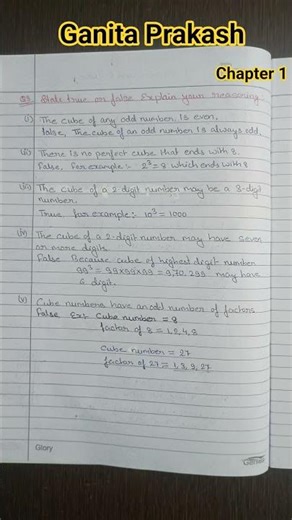 Ganita Prakash
Chapter 1
Q3 State true or false Explain your reasoning
(i) The cube of any odd number is even.
false, The cube of an odd number is always odd.
(ii) There is no perfect cube that ends with 8.
False, for example:- 2³ = 8 which ends with 8
(iii) The cube of a 2 digit number may be a 3-digit
number.
True for example:- 10³ = 1000
(iv) The cube of a 2-digit number may have seven
or more digits.
False Because cube of highest digit number
99³ = 99×99×99 = 9,70,299 may have
6 digit.
(v) Cube numbers have an odd number of factors
False Ex:- Cube number = 8
factor of 8 = 1,2,4,8
Cube number = 27
factor of 27 = 1,3,9,27
Glory